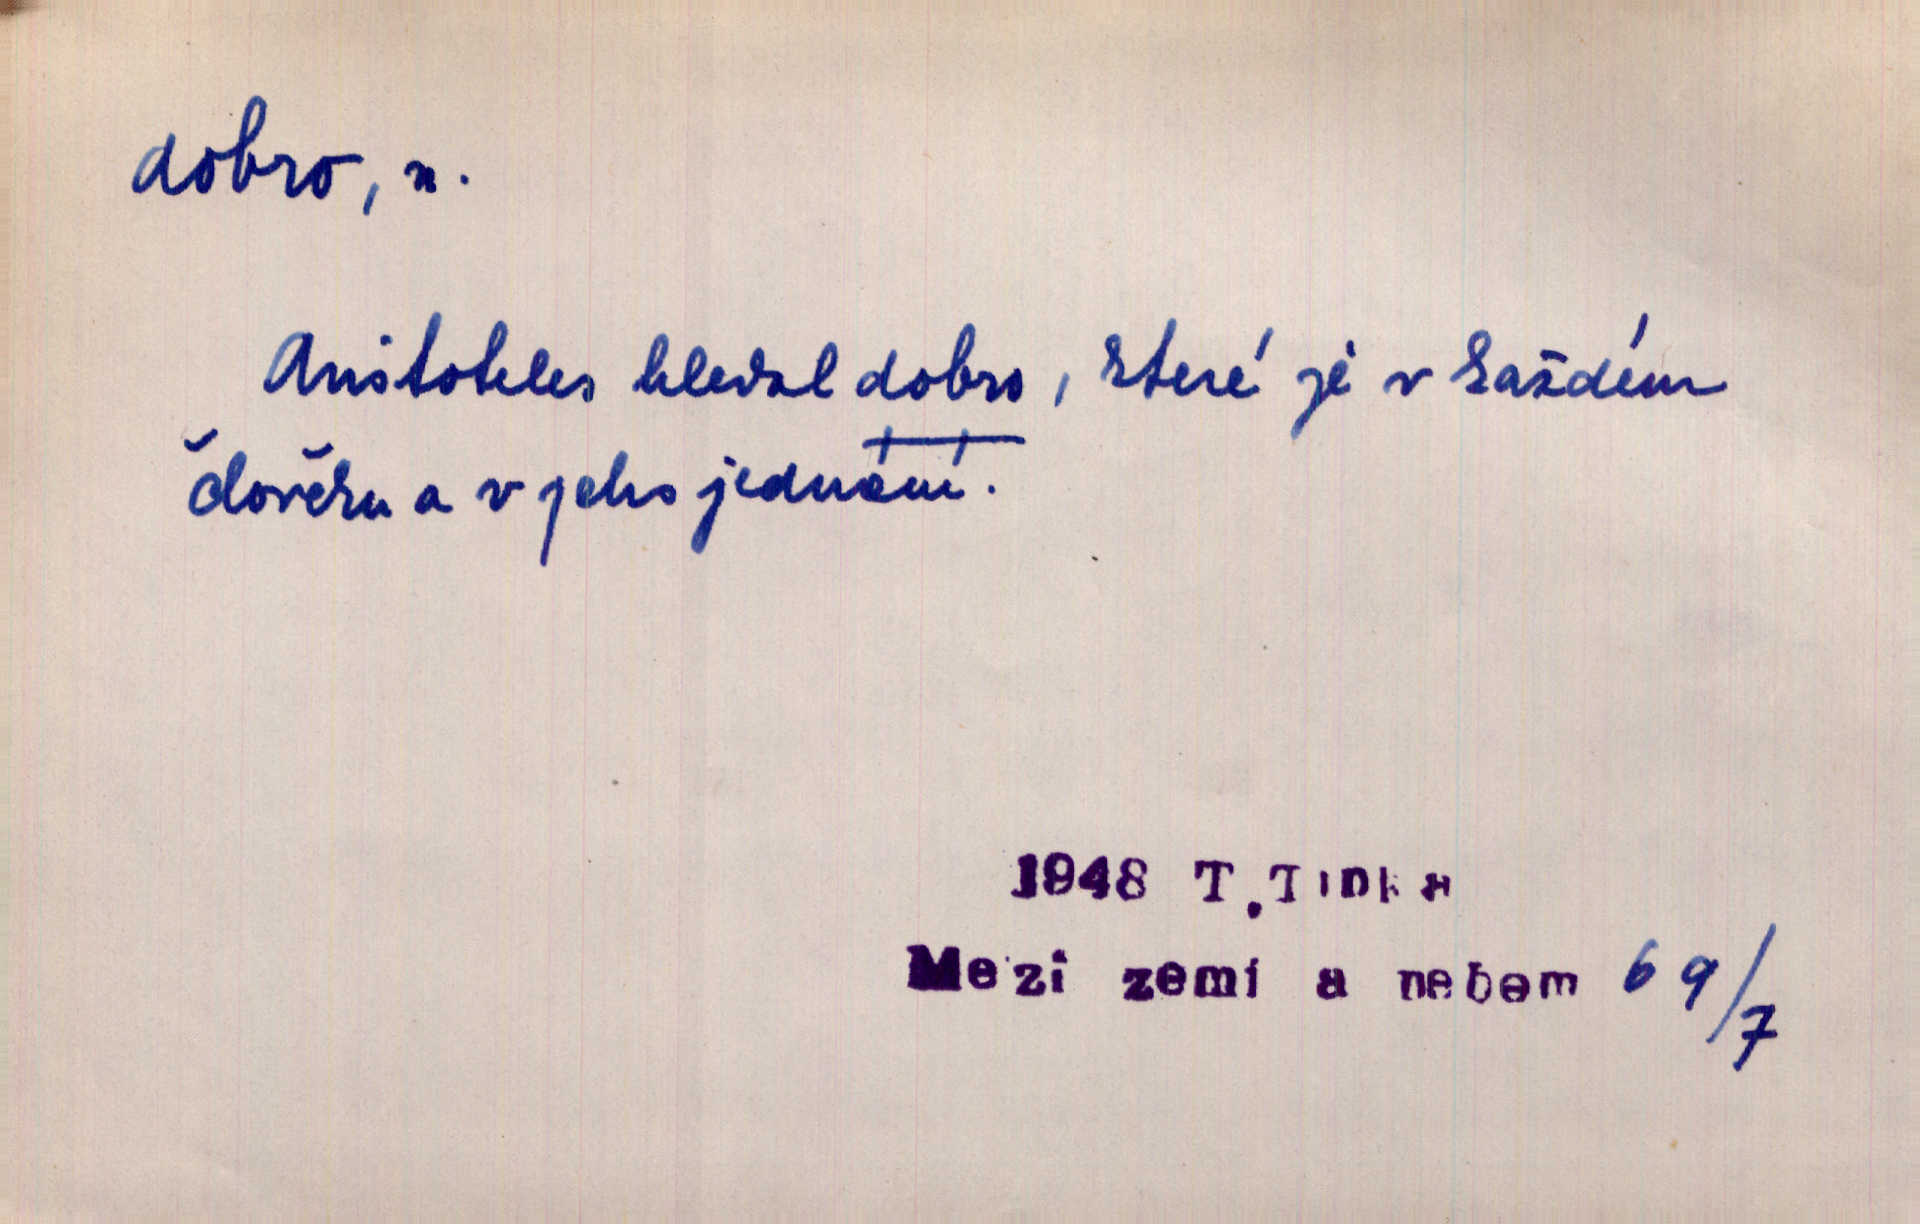 dobro, n.
Aristoteles hledal dobro, které je v každém
člověku a v jeho jednání.
1948 T.
Mezi zemí a nebem 69/7